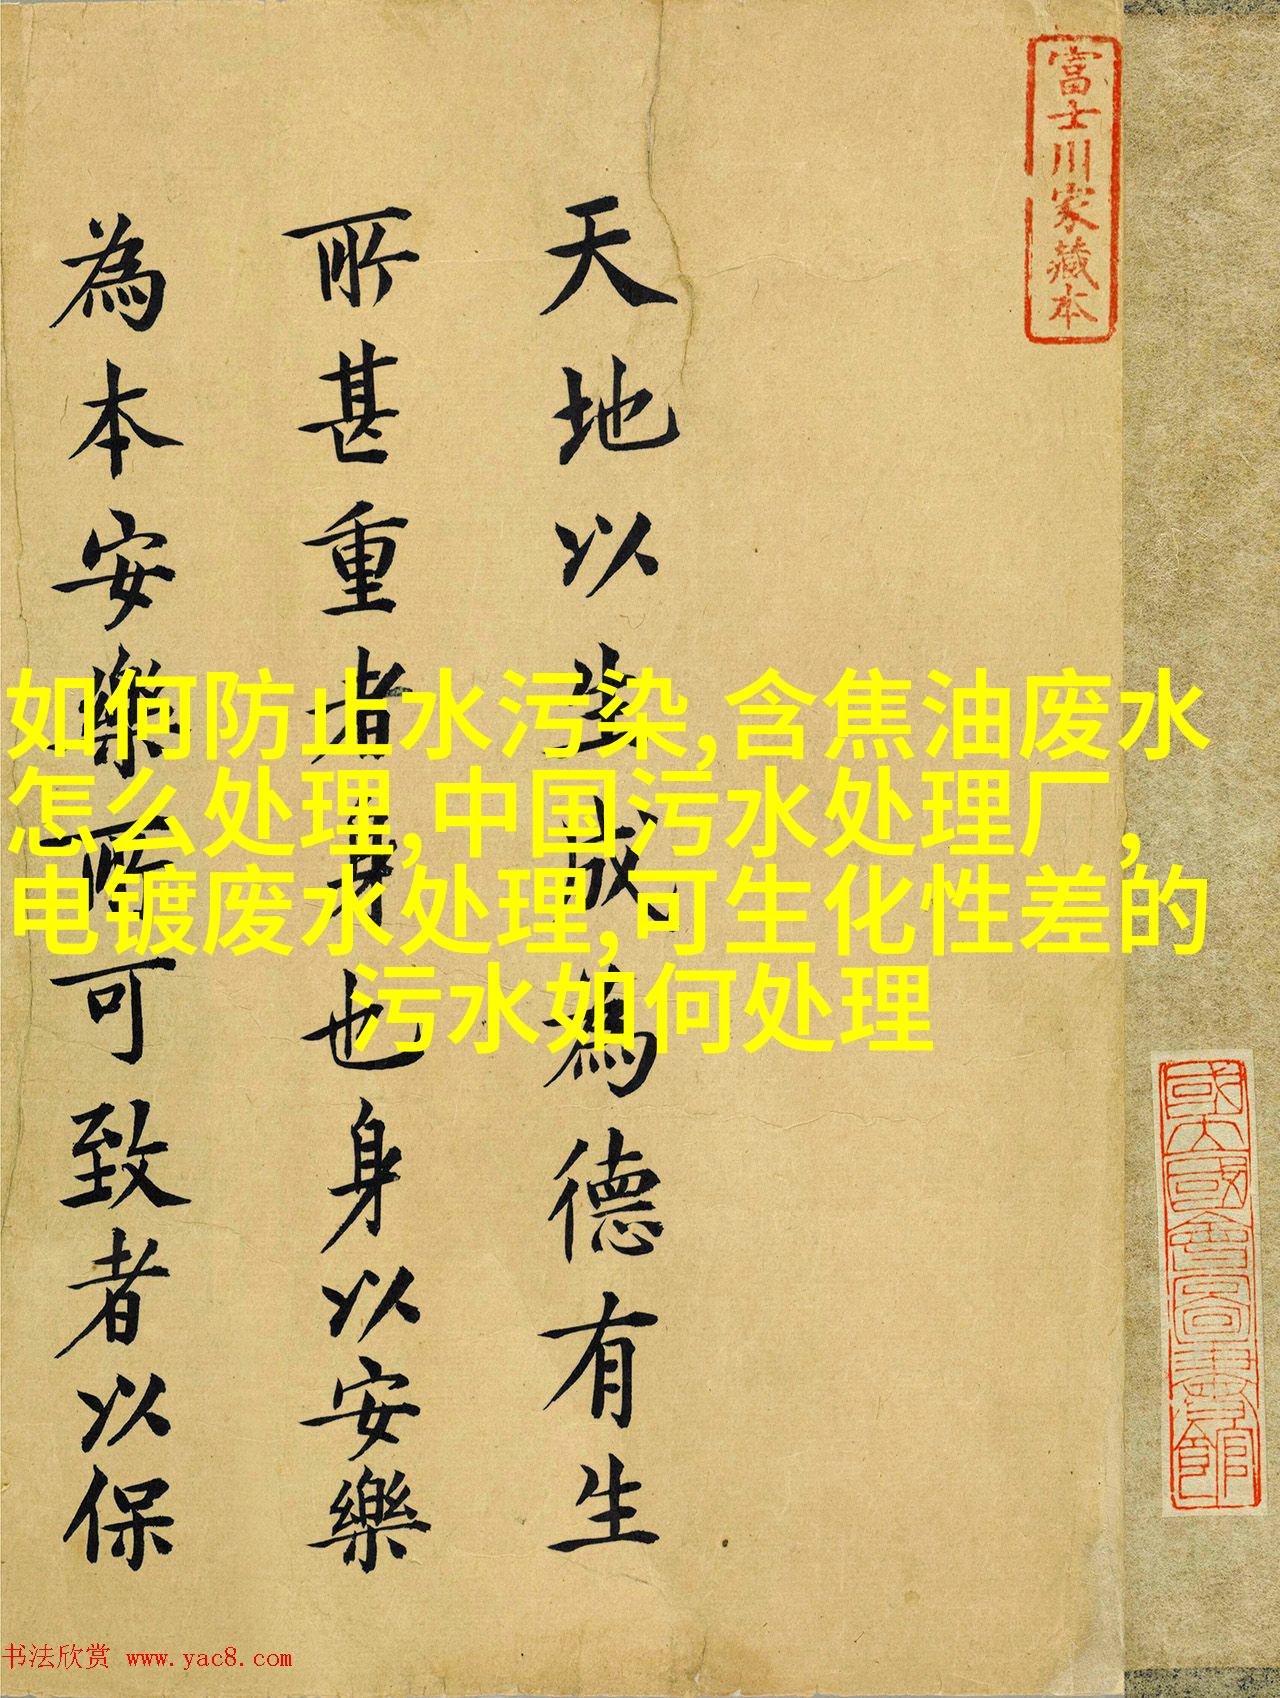 富士川家藏本
天地以生成為德有生
所甚重者身也身以安樂
為本安樂所可致者以保
如何防止水污染,含焦油废水
怎么处理,中国污水处理厂,
电镀废水处理,可生化性差的
污水如何处理
書法欣赏 www.yac8.com